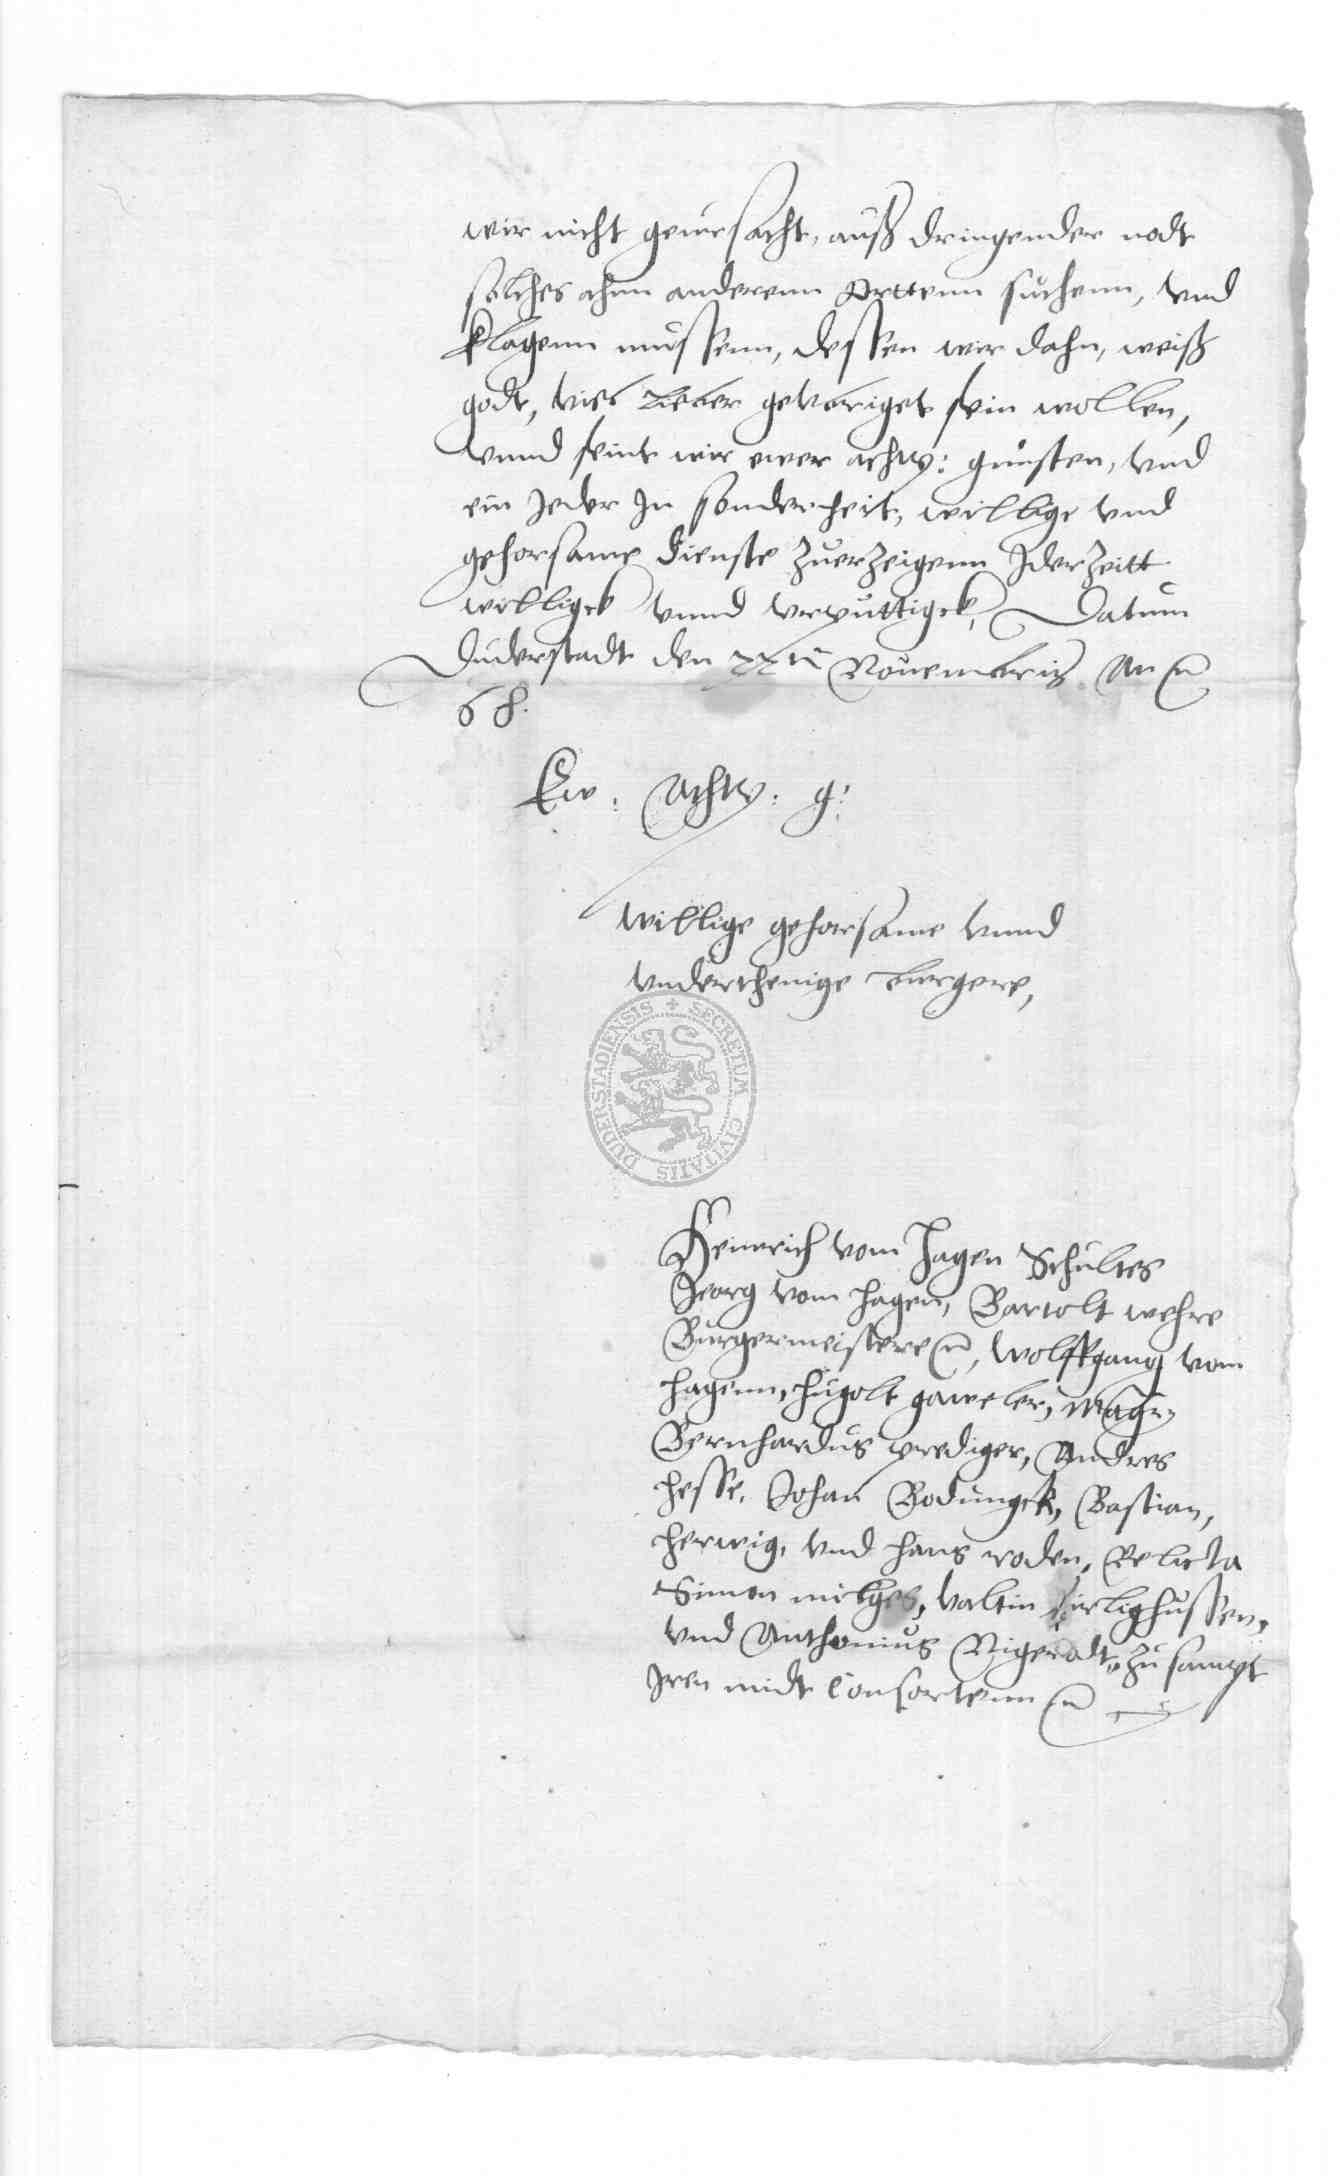 wir nicht geuersacht, auß dringender nodt
solches ahnn anderenn Orttenn suchenn, vnd
klagenn mussenn, dessen wir dahn, weiß
godt, viel lieber geubriget sein wollen,
vnnd seint wir ewer achtb: gunsten, vnd
ein Jeder In sonderheit, willige vnd
gehorsame dienste zuerzeigenn Jderzeitt
willigck vnnd vrputtigck, Datum
Duderstadt den Nouembris An
68.
Ew: Achtb: g:
willige gehorsame vnnd
vnderthenige burgere,
SECRETUM CIVITATIS DUDERSTADIENSIS
Heinrich vom Hagen Schultes
Jeorg vom hagen, Bartolt wehre
Burgermeistere, Wolffgang vom
hagenn, hugolt gaweler, Magr
Bernhardus prediger, Andres
hesse, Johan Bodungck, Bastian,
herwig, vnd hans roden, Relicta
Simon valtin
vnd Anthonius zu sampt
Iren midt Consortenn